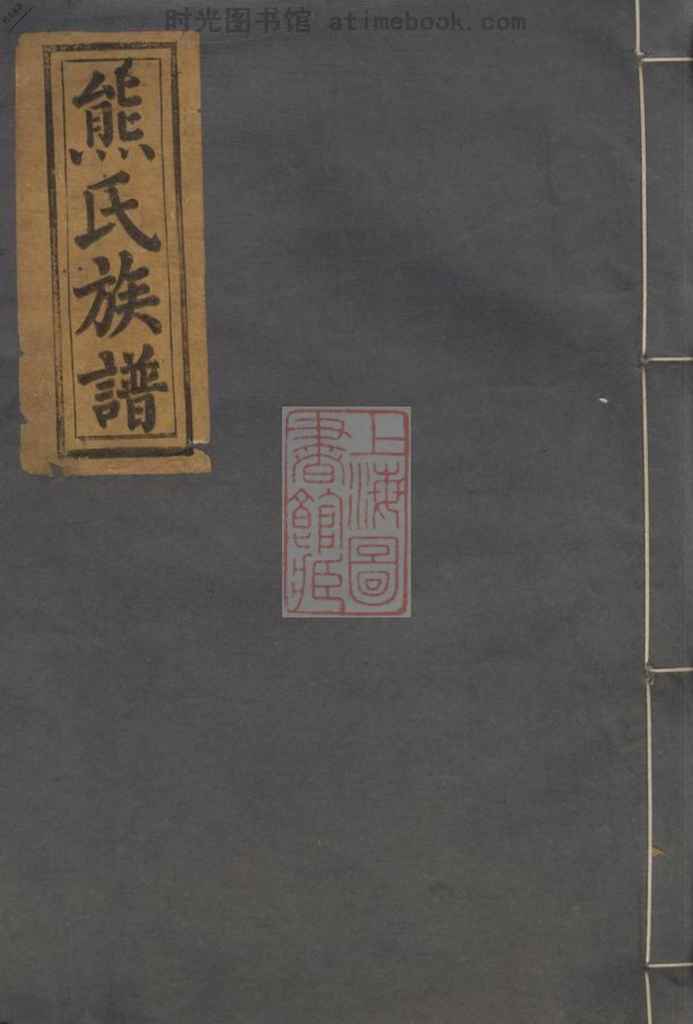 时光图书馆 atimebook.com
熊氏族譜
上海圖
書館藏